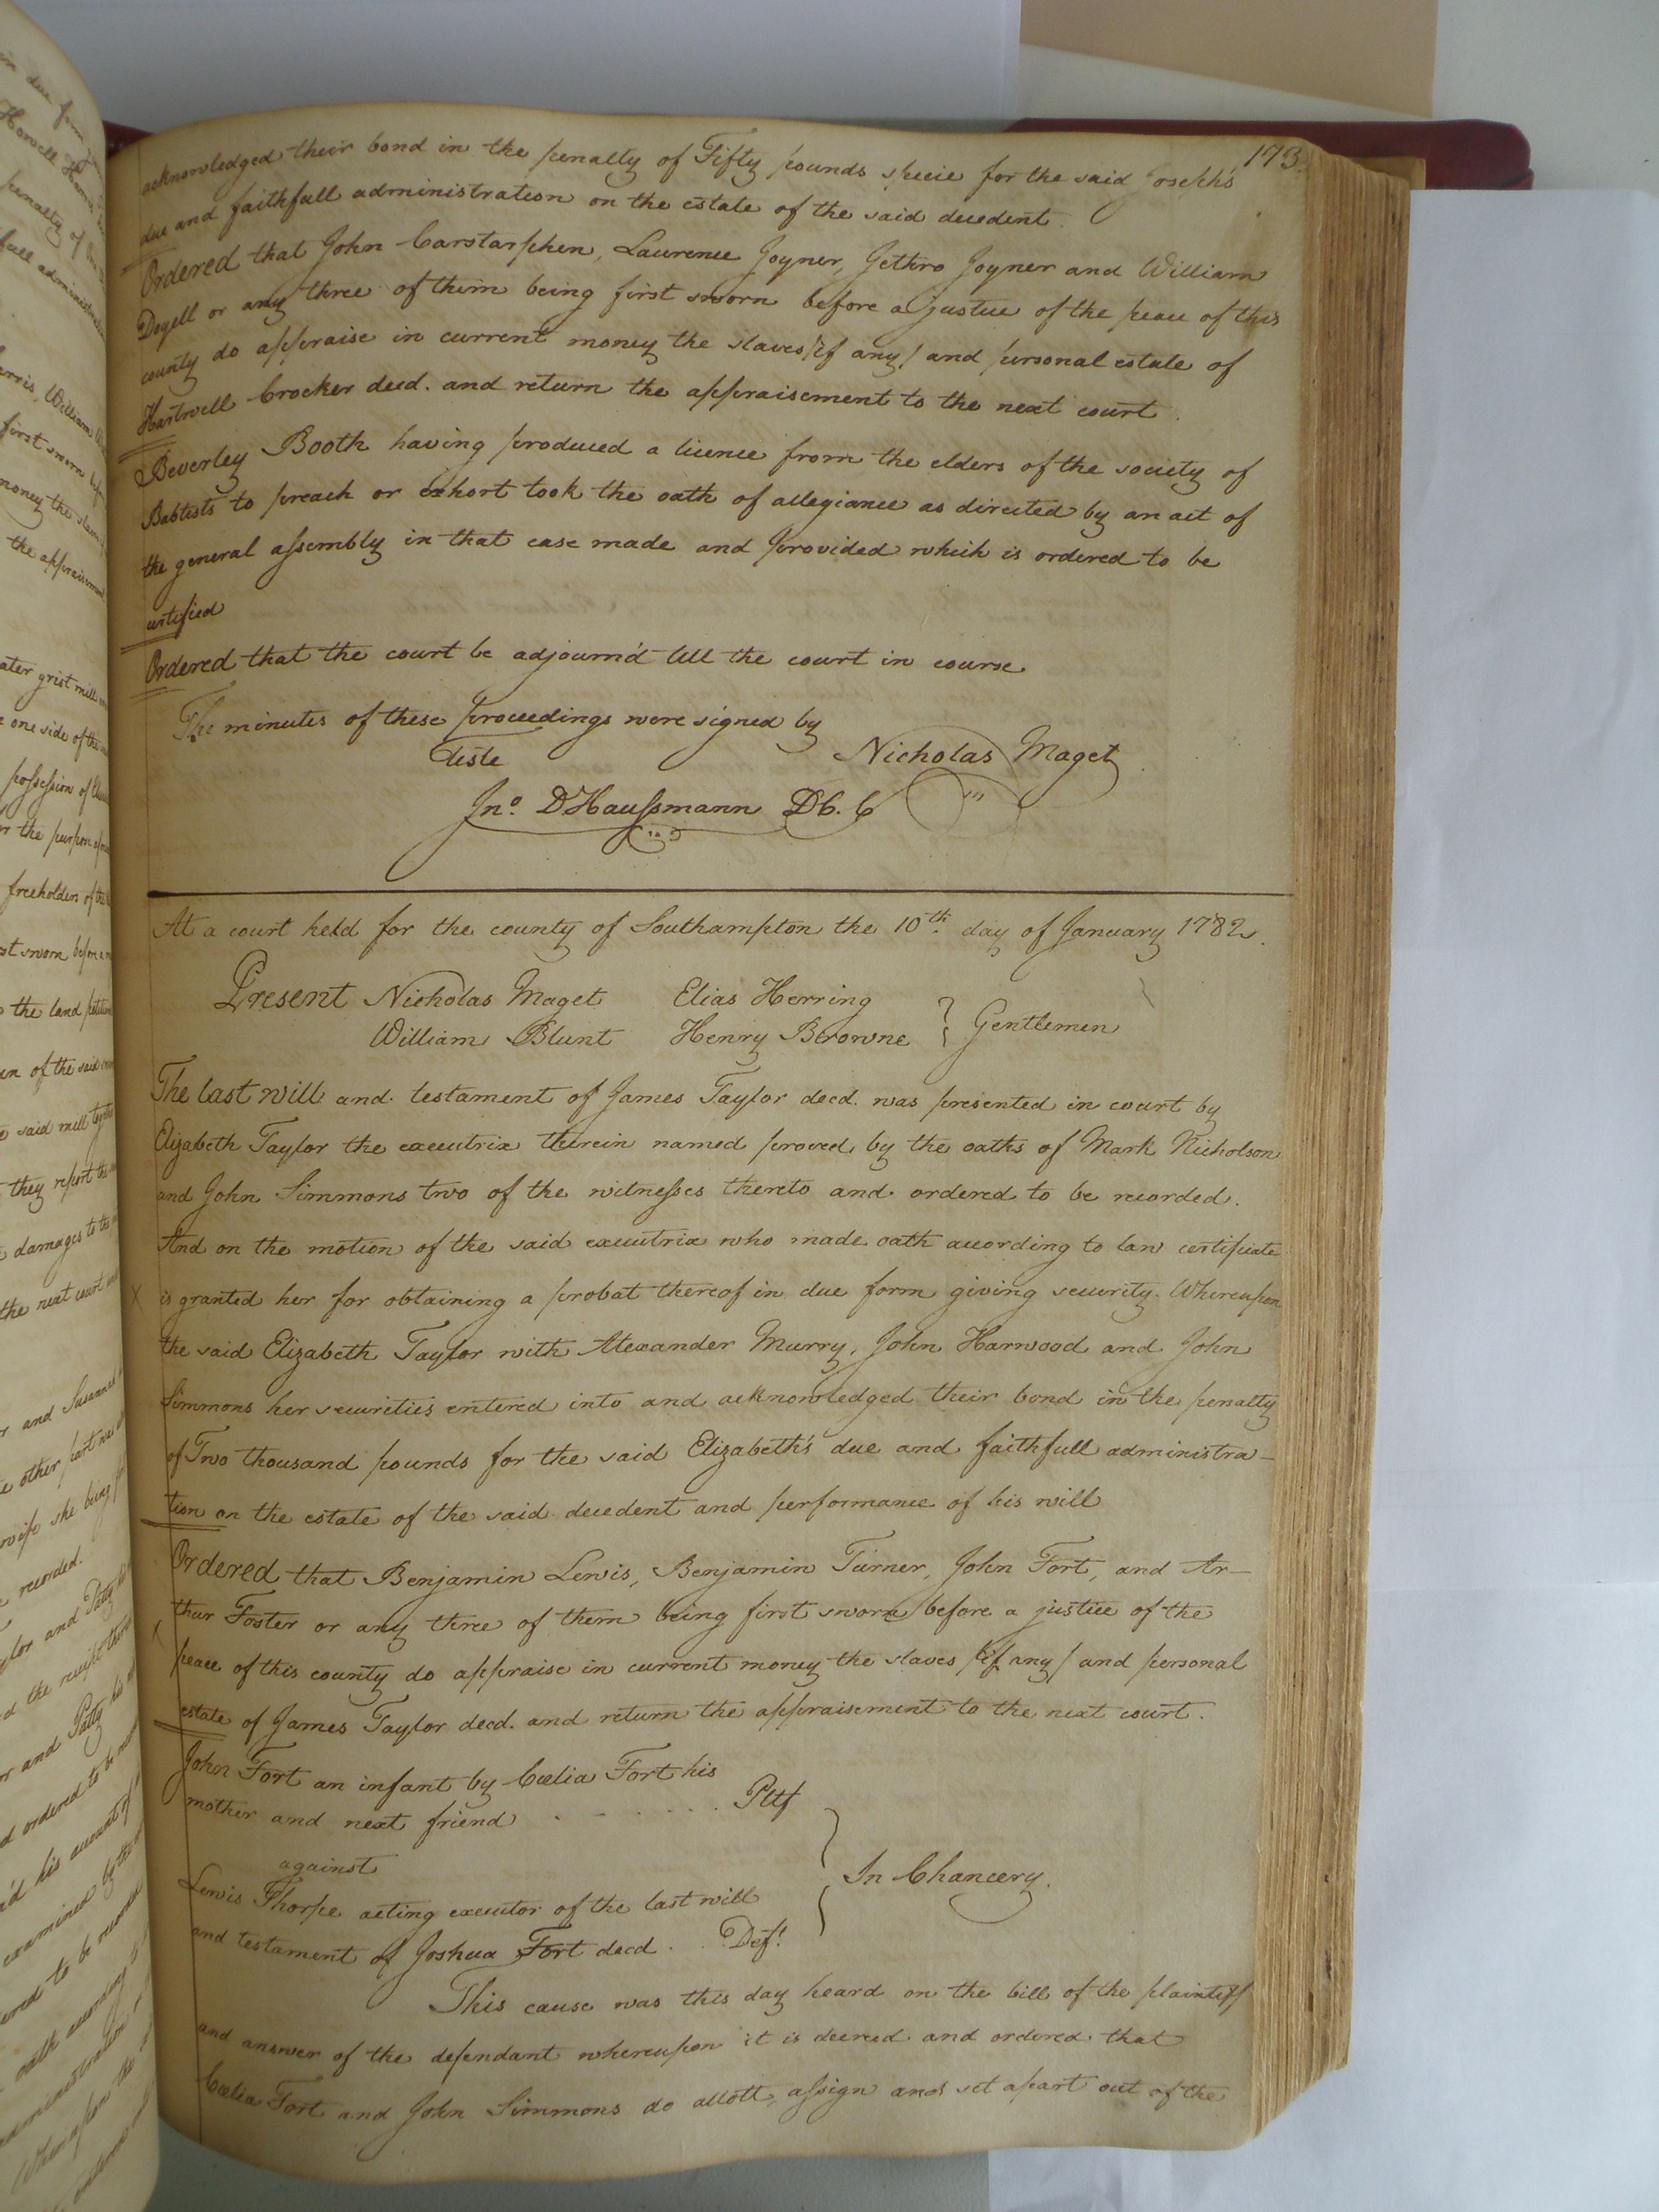 173.
acknowledged their bond in the penalty of Fifty pounds specie for the said Joseph's
due and faithfull administration on the estate of the said decedent.
Ordered that John Carstarphen, Laurence Joyner, Jethro Joyner and William
Doyell or any three of them being first sworn before a justice of the peace of this
county do appraise in current money the slaves /if any/ and personal estate of
Hartwell Crocker decd. and return the appraisement to the next court.
Beverley Booth having produced a licence from the elders of the society of
Babtists to preach or exhort took the oath of allegiance as directed by an act of
the general assembly in that case made and provided which is ordered to be
certified
Ordered that the court be adjourn'd till the court in course
The minutes of these proceedings were signed by
Teste Nicholas Maget
Jno. D Haussmann D C. C
At a court held for the county of Southampton the 10th. day of January 1782.
Present Nicholas Maget Elias Herring
William Blunt Henry Browne } Gentlemen
The last will and testament of James Taylor decd. was presented in court by
Elizabeth Taylor the executrix therein named proved by the oaths of Mark Nicholson
and John Simmons two of the witnesses thereto and ordered to be recorded.
And on the motion of the said executrix who made oath according to law certificate
is granted her for obtaining a probat thereof in due form giving security. Whereupon
the said Elizabeth Taylor with Alexander Murry, John Harwood and John
Simmons her securities entered into and acknowledged their bond in the penalty
of Two thousand pounds for the said Elizabeth's due and faithfull administra-
tion on the estate of the said decedent and performance of his will
Ordered that Benjamin Lewis, Benjamin Turner, John Fort, and Ar-
thur Foster or any three of them being first sworn before a justice of the
peace of this county do appraise in current money the slaves /if any/ and personal
estate of James Taylor decd. and return the appraisement to the next court.
John Fort an infant by Cœlia Fort his
mother and next friend . . . . . . . Pltf
against
In Chancery.
Lewis Thorpe acting executor of the last will
and testament of Joshua Fort decd . . Deft.
This cause was this day heard on the bill of the plaintiff
and answer of the defendant whereupon it is decreed and ordered that
Cœlia Fort and John Simmons do allott, assign and set apart out of the